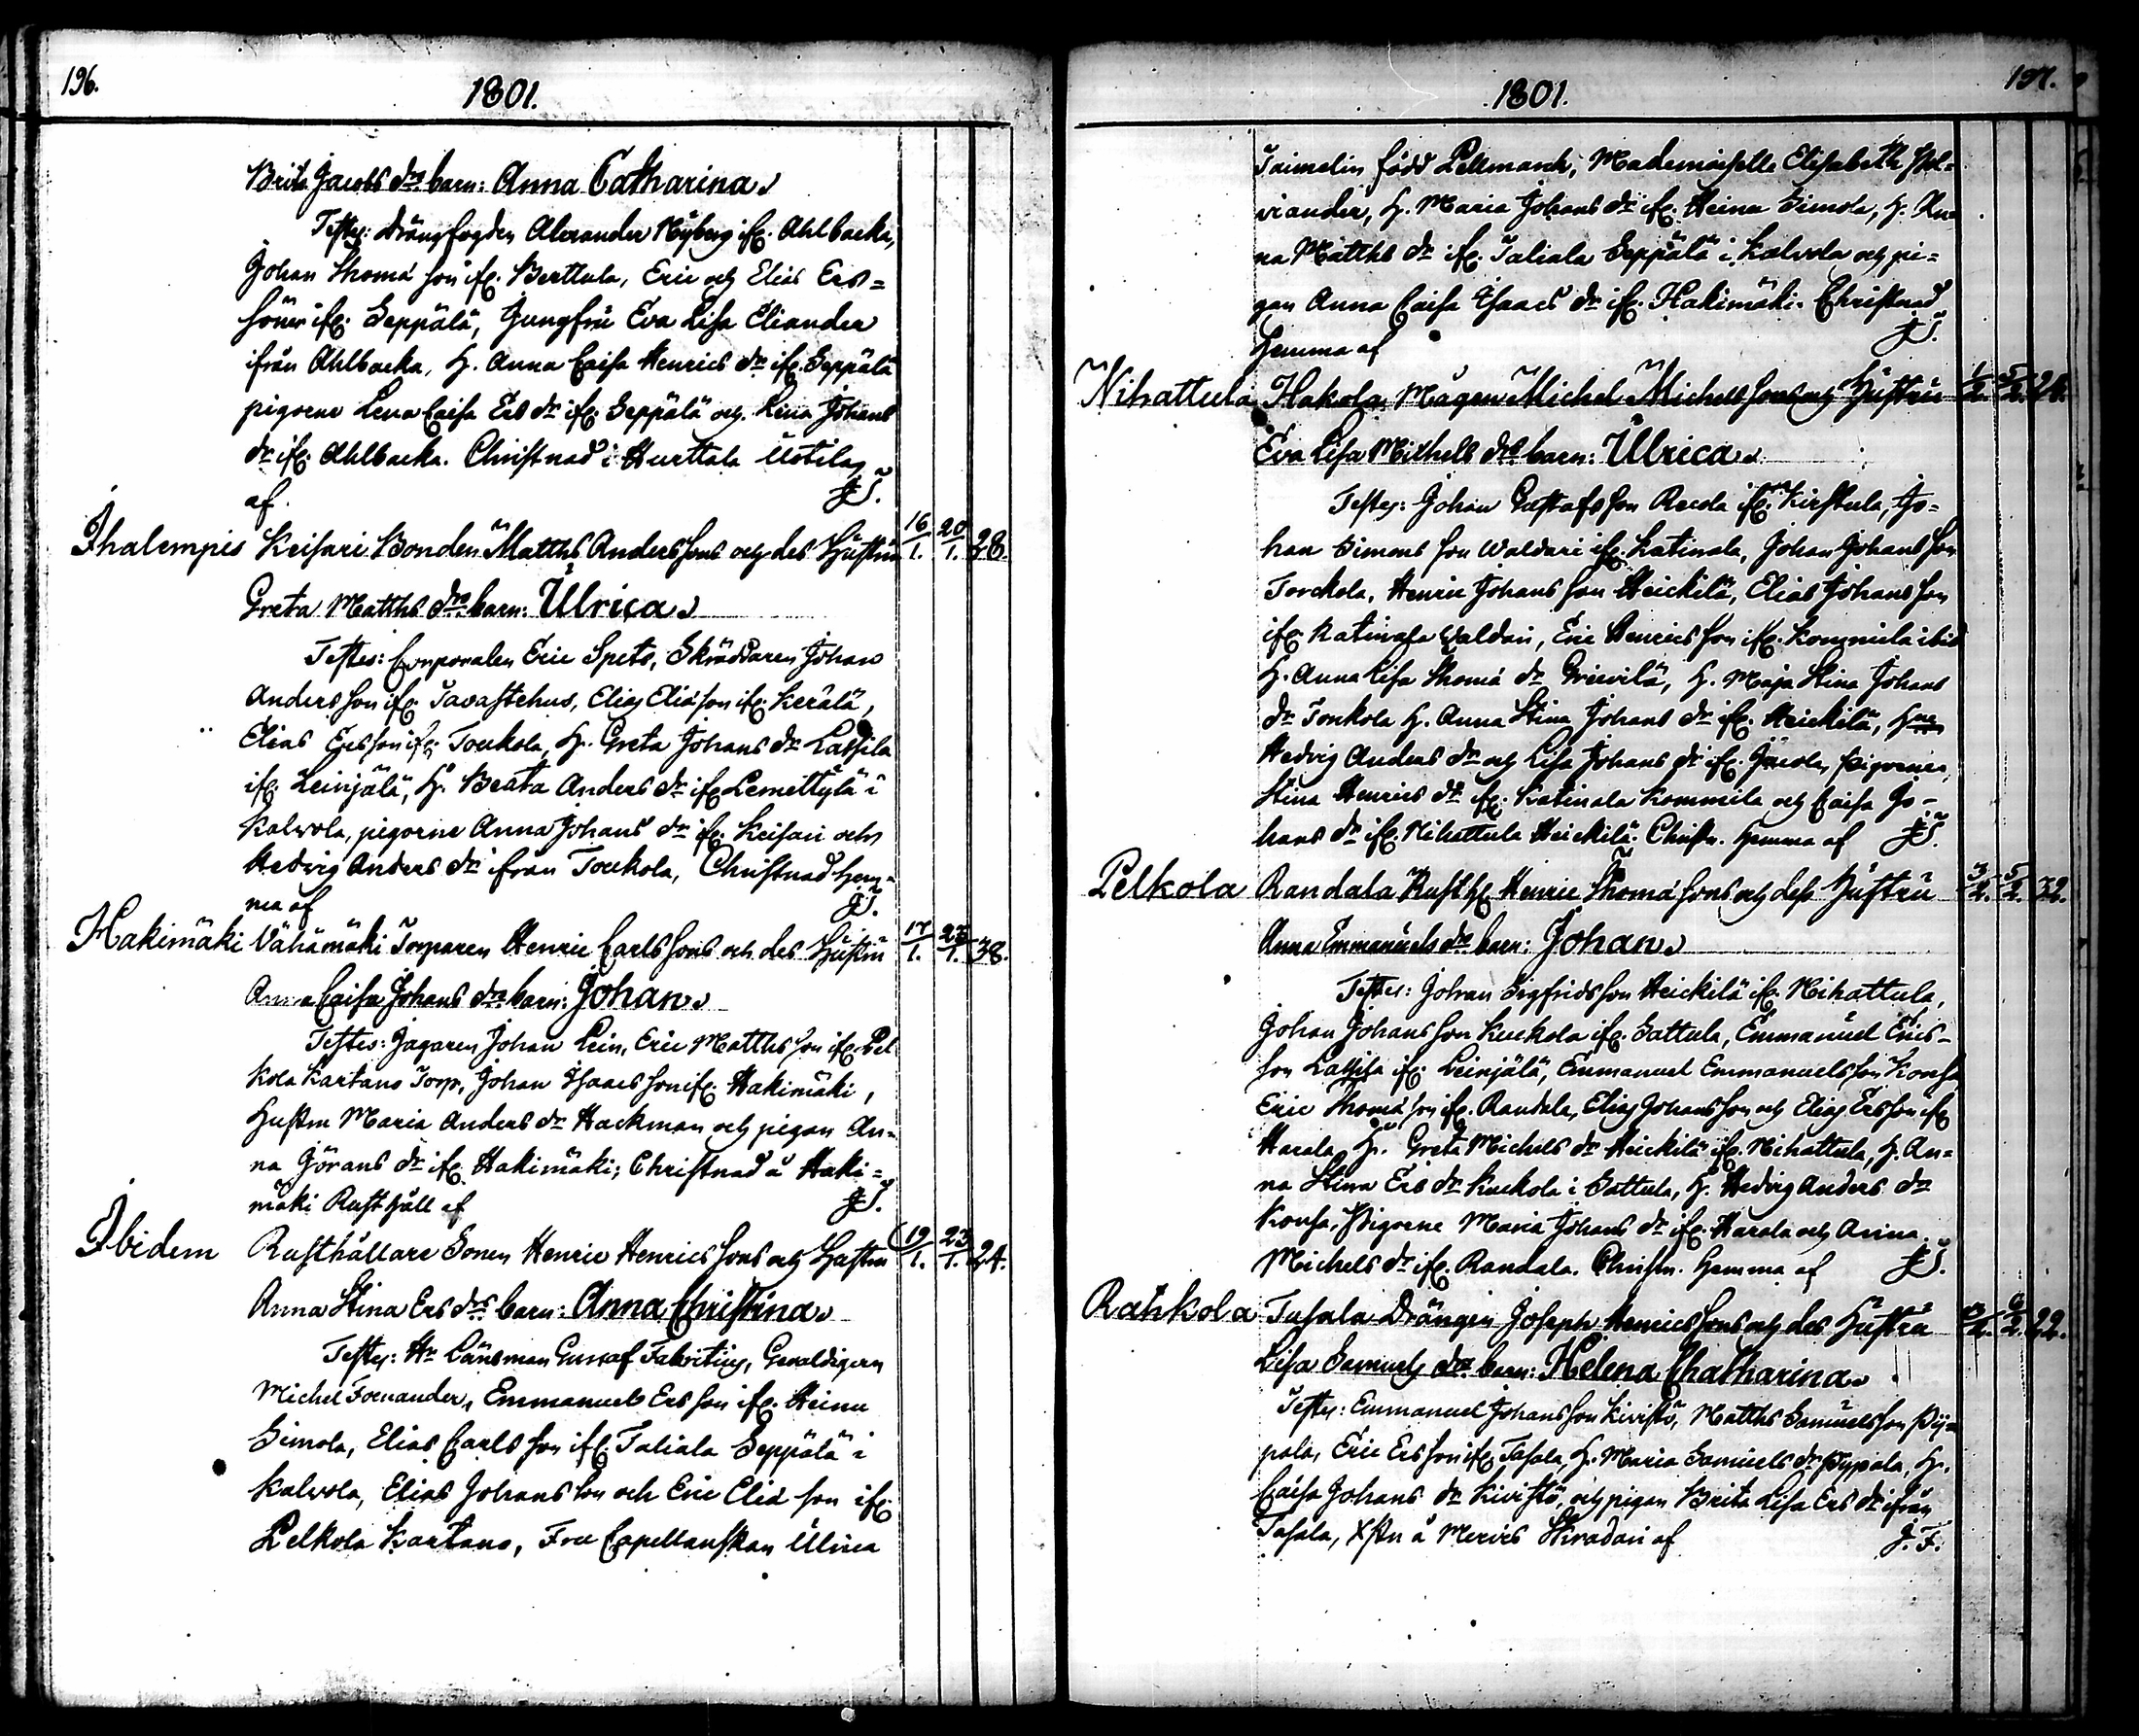 196.
1801.
Brita Jacobs drs barn: Anna Catharina
Testes: Drängfogden Alexander Nyberg ifr. Ahlbacka,
Johan Thomæ son ifr. Berttula, Eric och Elias Ers=
söner ifr. Seppälä, Jungfru Eva Lisa Eliander
ifrån Ahlbacka, H. Anna Caisa Henrics dr ifr. Seppälä
pigorne Lena Caisa Ers dr ifr. Seppälä och Lena Johans
dr ifr. Ahlbacka. Christnad i Hurttala Ustila
af J. T.
Ihalempis Keisari Bonden Matths Anders sons och des Hustru 16/1. 20/1. 28.
Greta Matths drs barn: Ulrica
Testes: Corporalen Eric Spets, Skräddaren Johan
Anders son ifr. Tavastehus, Elias Eliæ son ifr. Kerälä,
Elias Ers son ifr. Toukola, H. Greta Johans dr Lassila
ifr. Leinjälä, H. Beata Anders dr ifr. Lemettylä i
Kalvola, pigorne Anna Johans dr ifr. Keisari och
Hedvig Anders dr ifrån Toukola, Christnad hem=
ma af J. T.
Hakimäki Vähämäki Torparen Henric Carls sons och des Hustru 17/1. 23/1. 38.
Anna Caisa Johans drs barn: Johan
Testes: Jagaren Johan Lein, Eric Matths son ifr. Pel
kola Kartano Torp, Johan Isaacs son ifr. Hakimäki,
Hustru Maria Anders dr Hackman och pigan An=
na Görans dr ifr. Hakimäki; Christnad å Haki=
mäki Rusthåll af J. T.
Ibidem Rusthållare Sonen Henric Henrics sons och Hustru 19/1. 23/1. 24.
Anna Stina Ers drs barn: Anna Christina
Testes: Hr Länsman Gustaf Fabritius, Gevaldigern
Michel Fornander, Emmanuel Ers son ifr. Heinu
Simola, Elias Carls son ifr. Taliala Seppälä i
Kalvola, Elias Johans son och Eric Eliæ son ifr.
Pelkola Kartano, Fru Capellanskan Ulrica
197.
1801.
född Pellmarck, Mademoiselle Elisabeth
H. Maria Johans dr ifr. Heinu Simola, H. An=
na Matths dr ifr. Taliala Seppälä i Kalvola och pi=
gan Anna Caisa Isaacs dr ifr. Hakimäki. Christnad
hemma af J. T.
Nihattula Hakola Mågen Michel Michels sons och Hustru 1/2. 5/2. 24.
Eva Lisa Michels drs barn: Ulrica
Testes: Johan Gustafs son ifr. Kirstula, Jo=
han Simons son Waldari ifr. Katinala, Johan Johans son
Torckola, Henric Johans son Heickilä, Elias Johans son
ifr. Katinala Waldari, Eric Henrics son ifr. Kommila ibid
H. Anna Lisa Thomæ dr H. Maja Stina Johans
dr H. Anna Stina Johans dr ifr. Heickilä, H
Hedvig Anders dr och Lisa Johans dr ifr. pigorne
Stina Henrics dr ifr. Katinala Kommila och Caisa Jo=
hans dr ifr. Nihattula Heickilä. Christn. hemma af J. T.
Pelkola Randala Rusth. Henric Thomæ sons och dess Hustru 3/2. 5/2. 32.
Anna Emmanuels drs barn: Johan
Testes: Johan Sigfrids son Heickilä ifr. Nihattula,
Johan Johans son Kuckola ifr. Sattula, Emmanuel Erics=
son Lassila ifr. Leinjälä, Emmanuel Emmanuels son Konsa
Eric Thomæ son ifr. Randala, Elias Johans son och Elias Ers son ifr
Harala, H. Greta Michels dr Heickilä ifr. Nihattula, H. An=
na Stina Ers dr Kuckola i Sattula, H. Hedvig Anders dr
Konsa, Pigorne Maria Johans dr ifr. Harala och Anna
Michels dr ifr. Randala. Christn. hemma af J. T.
Rahkola Tasala Drängen Joseph Henrics sons och des Hustru 22.
Lisa Samuels drs barn: Helena Chatharina
Testes: Emmanuel Johans son Kivistö, Matths Samuels son Py=
pala, Eric Ers son ifr. Tasala, H. Maria Samuels dr Pypala, H.
Caisa Johans dr Kivistö, och pigan Brita Lisa Ers dr ifrån
Tasala, Xstn å Mervis af J. F.